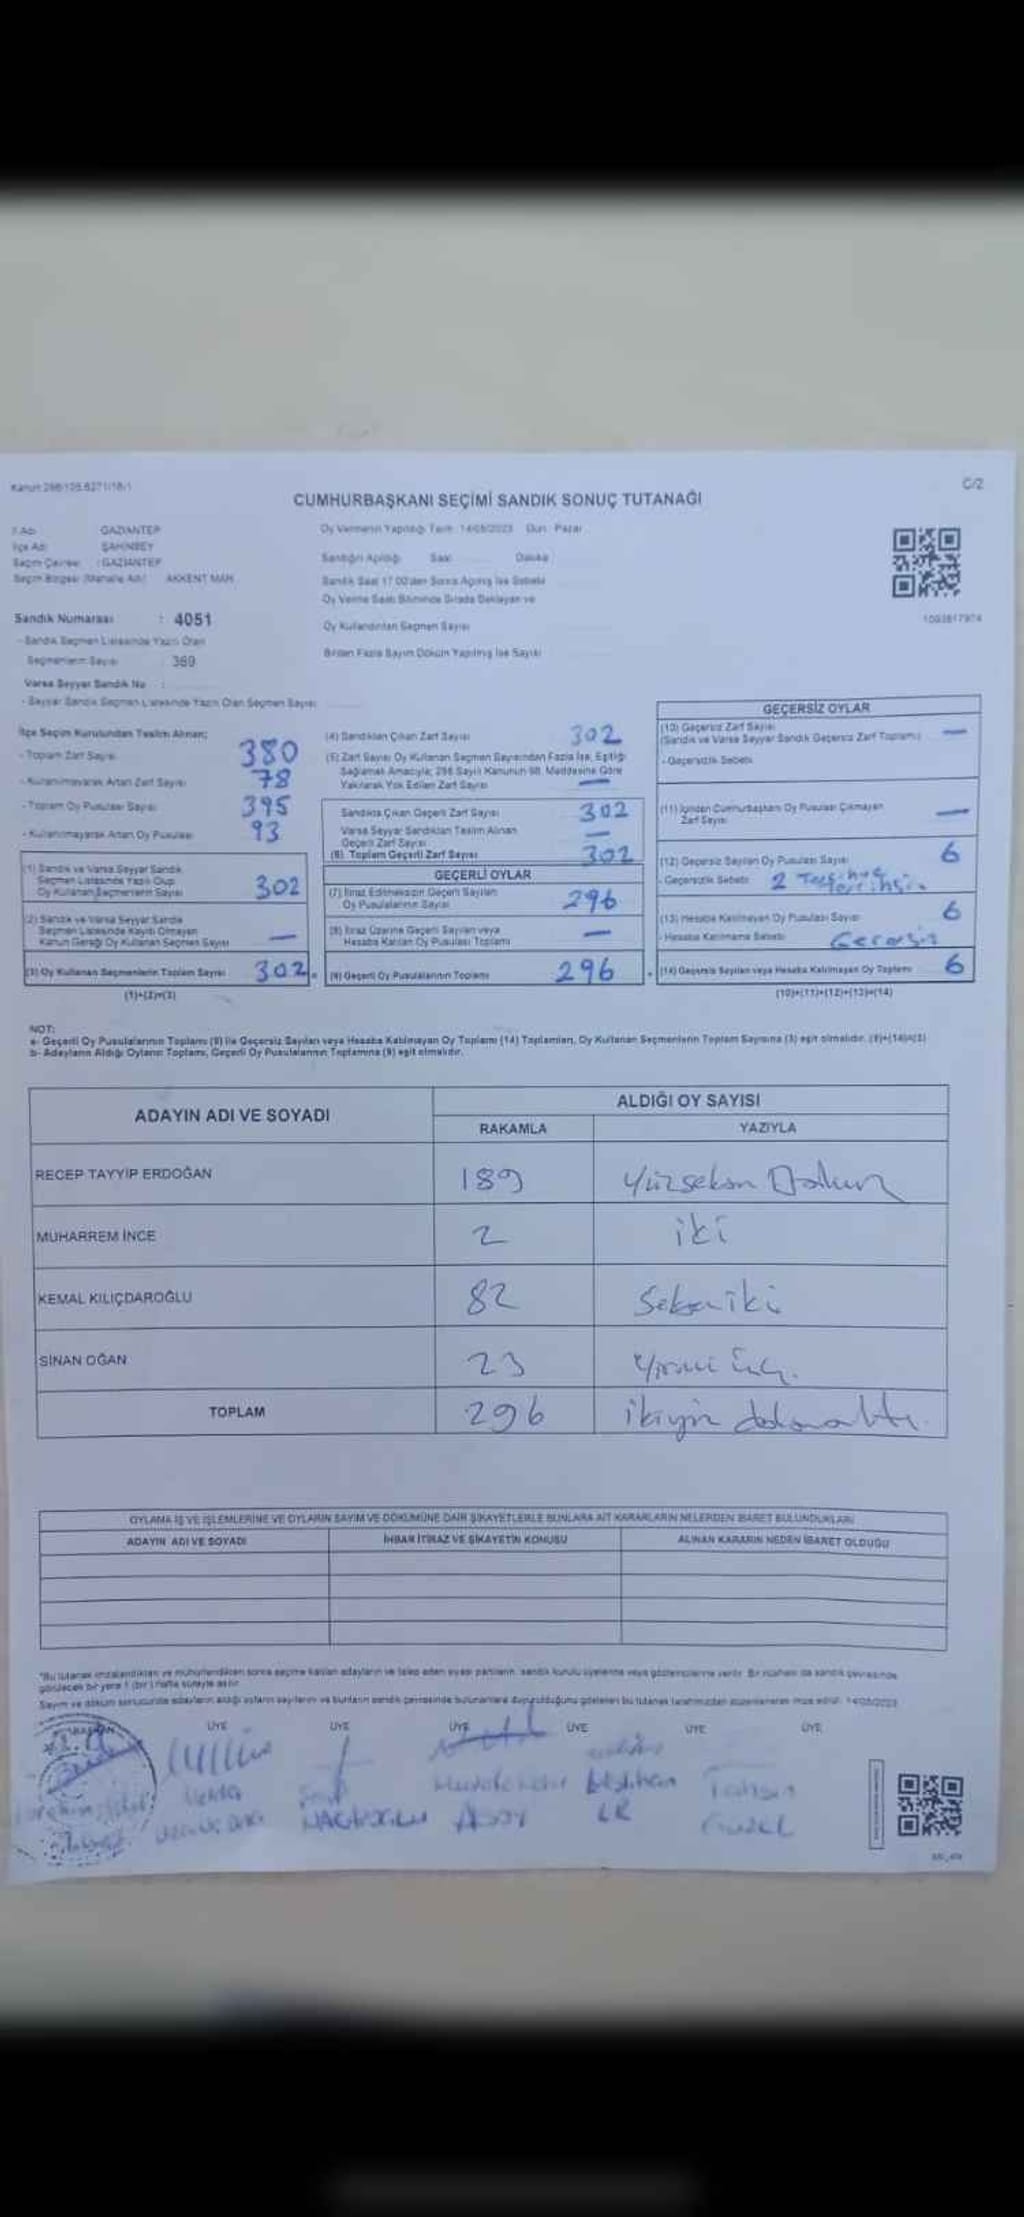 Kanun:298/105,6271/18/1
C/2
CUMHURBAŞKANI SEÇİMİ SANDIK SONUÇ TUTANAĞI
İl Adı GAZİANTEP
İlçe Adı ŞAHİNBEY
Seçim Çevresi : GAZİANTEP
Seçim Bölgesi (Mahalle Adı) AKKENT MAH.
Oy Vermenin Yapıldığı Tarih: 14/05/2023 Gün: Pazar
Sandığın Açıldığı Saat Dakika
Sandık Saat 17.00'den Sonra Açılmış İse Sebebi
Oy Verme Saati Bitiminde Sırada Bekleyen ve
Oy Kullandırılan Seçmen Sayısı
Birden Fazla Sayım Döküm Yapılmış İse Sayısı
Sandık Numarası : 4051
- Sandık Seçmen Listesinde Yazılı Olan
Seçmenlerin Sayısı : 369
Varsa Seyyar Sandık No :
- Seyyar Sandık Seçmen Listesinde Yazılı Olan Seçmen Sayısı
İlçe Seçim Kurulundan Teslim Alınan;
- Toplam Zarf Sayısı 380
- Kullanılmayarak Artan Zarf Sayısı 78
- Toplam Oy Pusulası Sayısı 395
- Kullanılmayarak Artan Oy Pusulası 93
(1) Sandık ve Varsa Seyyar Sandık
Seçmen Listesinde Yazılı Olup
Oy Kullanan Seçmenlerin Sayısı 302
(2) Sandık ve Varsa Seyyar Sandık
Seçmen Listesinde Kayıtlı Olmayan
Kanun Gereği Oy Kullanan Seçmen Sayısı —
(3) Oy Kullanan Seçmenlerin Toplam Sayısı 302
(1)+(2)=(3)
(4) Sandıktan Çıkan Zarf Sayısı 302
(5) Zarf Sayısı Oy Kullanan Seçmen Sayısından Fazla İse, Eşitliği
Sağlamak Amacıyla; 298 Sayılı Kanunun 98. Maddesine Göre
Yakılarak Yok Edilen Zarf Sayısı —
Sandıkta Çıkan Geçerli Zarf Sayısı 302
Varsa Seyyar Sandıktan Teslim Alınan
Geçerli Zarf Sayısı —
(6) Toplam Geçerli Zarf Sayısı 302
GEÇERLİ OYLAR
(7) İtiraz Edilmeksizin Geçerli Sayılan
Oy Pusulalarının Sayısı 296
(8) İtiraz Üzerine Geçerli Sayılan veya
Hesaba Katılan Oy Pusulası Toplamı —
(9) Geçerli Oy Pusulalarının Toplamı 296
GEÇERSİZ OYLAR
(10) Geçersiz Zarf Sayısı —
(Sandık ve Varsa Seyyar Sandık Geçersiz Zarf Toplamı)
- Geçersizlik Sebebi
(11) İçinden Cumhurbaşkanı Oy Pusulası Çıkmayan
Zarf Sayısı —
(12) Geçersiz Sayılan Oy Pusulası Sayısı 6
- Geçersizlik Sebebi 2
(13) Hesaba Katılmayan Oy Pusulası Sayısı 6
- Hesaba Katılmama Sebebi Gecersiz
(14) Geçersiz Sayılan veya Hesaba Katılmayan Oy Toplamı 6
(10)+(11)+(12)+(13)=(14)
NOT:
a- Geçerli Oy Pusulalarının Toplamı (9) ile Geçersiz Sayılan veya Hesaba Katılmayan Oy Toplamı (14) Toplamları, Oy Kullanan Seçmenlerin Toplam Sayısına (3) eşit olmalıdır. (9)+(14)=(3)
b- Adayların Aldığı Oyların Toplamı, Geçerli Oy Pusulalarının Toplamına (9) eşit olmalıdır.
ADAYIN ADI VE SOYADI
ALDIĞI OY SAYISI
RAKAMLA YAZIYLA
RECEP TAYYİP ERDOĞAN 189 Yüzseksen Dokuz
MUHARREM İNCE 2 iki
KEMAL KILIÇDAROĞLU 82 Seksen iki
SİNAN OĞAN 23 Yirmi üç.
TOPLAM 296 ikiyüz doksan altı.
OYLAMA İŞ VE İŞLEMLERİNE VE OYLARIN SAYIM VE DÖKÜMÜNE DAİR ŞİKAYETLERLE BUNLARA AİT KARARLARIN NELERDEN İBARET BULUNDUKLARI
ADAYIN ADI VE SOYADI İHBAR İTİRAZ VE ŞİKAYETİN KONUSU ALINAN KARARIN NEDEN İBARET OLDUĞU
ÜYE ÜYE ÜYE ÜYE ÜYE ÜYE